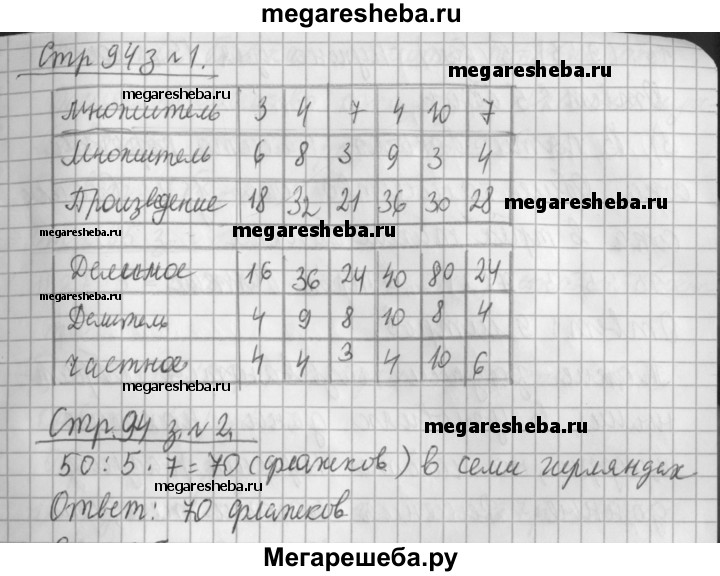 megaresheba.ru
Стр 94 з №1.
megaresheba.ru
megaresheba.ru
Множитель 3 4 7 4 10 7
Множитель 6 8 3 9 3 4
Произведение 18 32 21 36 30 28
megaresheba.ru
megaresheba.ru
megaresheba.ru
Делимое 16 36 24 40 80 24
megaresheba.ru
Делитель 4 9 8 10 8 4
частное 4 4 3 4 10 6
megaresheba.ru
Стр. 94 з. №2.
megaresheba.ru
50 : 5 · 7 = 70 (флажков) в семи гирляндах.
megaresheba.ru
Ответ: 70 флажков
Мегарешеба.ру